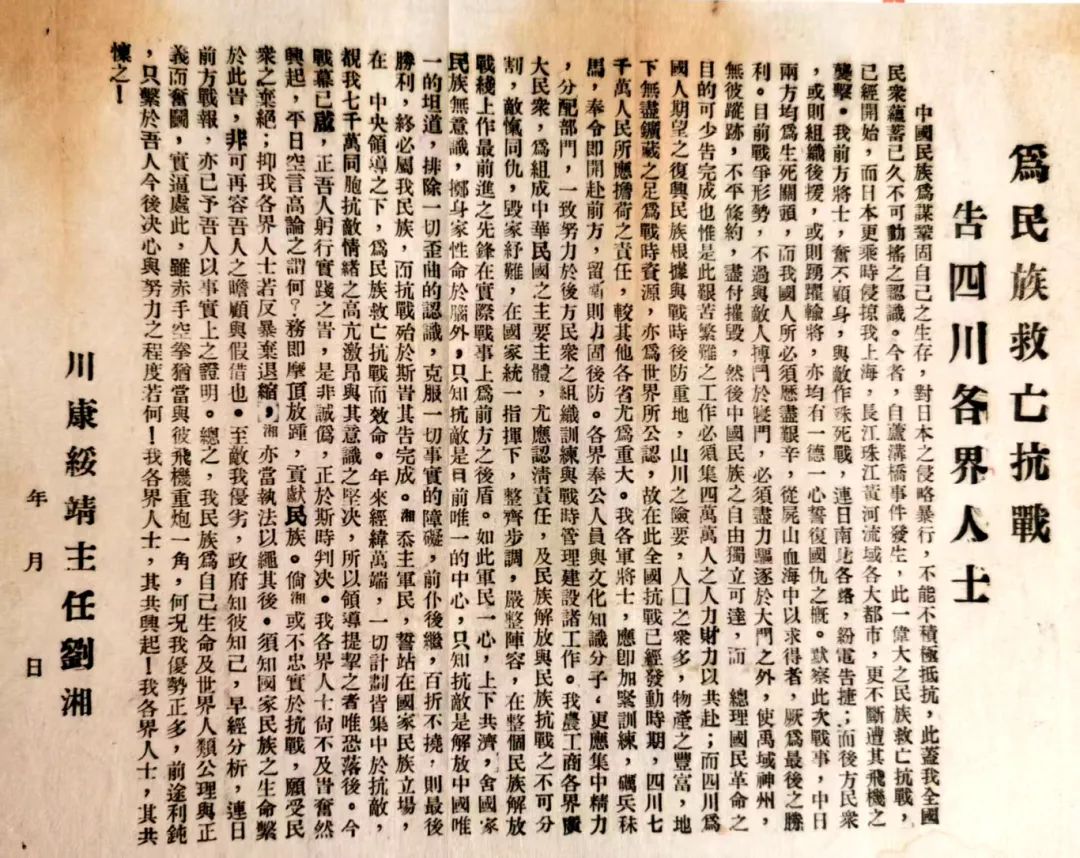 爲民族救亡抗戰
告四川各界人士
中國民族爲謀鞏固自己之生存，對日本之侵略暴行，不能不積極抵抗，此蓋我全國
民衆蘊蓄已久不可動搖之認識。今者，自蘆溝橋事件發生，此一偉大之民族救亡抗戰，
已經開始，而日本更乘時侵掠我上海，長江珠江黃河流域各大都市，更不斷遭其飛機之
襲擊。我前方將士，奮不顧身，與敵作殊死戰，連日南北各路，紛電告捷；而後方民衆
，或則組織後援，或則踴躍輸將，亦均有一德一心誓復國仇之慨。默察此次戰事，中日
兩方均爲生死關頭，而我國人所必須歷盡艱辛，從屍山血海中以求得者，厥爲最後之勝
利。目前戰爭形勢，不過與敵人搏鬥於寢門，必須盡力驅逐於大門之外，使禹域神州，
無彼蹤跡，不平條約，盡付摧毀，然後中國民族之自由獨立可達，而　總理國民革命之
目的可少告完成也惟是此艱苦繁難之工作必須集四萬萬人之人力財力以共赴；而四川爲
國人期望之復興民族根據與戰時後防重地，山川之險要，人口之衆多，物產之豐富，地
下無盡鑛藏之足爲戰時資源，亦爲世界所公認，故在此全國抗戰已經發動時期，四川七
千萬人民所應擔荷之責任，較其他各省尤爲重大。我各軍將士，應卽加緊訓練，礪兵秣
馬，奉令卽開赴前方，留則力固後防。各界奉公人員與文化知識分子，更應集中精力
，分配部門，一致努力於後方民衆之組織訓練與戰時管理建設諸工作。我農工商各界廣
大民衆，爲組成中華民國之主要主體，尤應認淸責任，及民族解放與民族抗戰之不可分
割，敵愾同仇，毀家紓難，在國家統一指揮下，整齊步調，嚴整陣容，在整個民族解放
戰綫上作最前進之先鋒在實際戰事上爲前方之後盾。如此軍民一心，上下共濟，舍國家
民族無意識，擲身家性命於腦外，只知抗敵是目前唯一的中心，只知抗敵是解放中國唯
一的坦道，排除一切歪曲的認識，克服一切事實的障礙，前仆後繼，百折不撓，則最後
勝利，終必屬我民族，而抗戰殆於斯皆其告完成。湘忝主軍民，誓站在國家民族立場，
在　中央領導之下，爲民族救亡抗戰而效命。年來經緯萬端，一切計劃皆集中於抗敵，
覩我七千萬同胞抗敵情緒之高亢激昂與其意識之堅決，所以領導提挈之者唯恐落後。今
戰幕已啟，正吾人躬行實踐之昔，是非誠僞，正於斯時判决。我各界人士尙不及皆奮然
興起，平日空言高論之謂何？務卽摩頂放踵，貢獻民族。倘湘或不忠實於抗戰，願受民
衆之棄絕；抑我各界人士若反暴棄退縮，湘亦當執法以繩其後。須知國家民族之生命繫
於此昔，非可再容吾人之瞻顧與假借也。至敵我優劣，政府知彼知己，早經分析，連日
前方戰報，亦已予吾人以事實上之證明。總之，我民族爲自己生命及世界人類公理與正
義而奮鬪，實逼處此，雖赤手空拳猶當與彼飛機重炮一角，何况我優勢正多，前途利鈍
，只繫於吾人今後決心與努力之程度若何！我各界人士，其共興起！我各界人士，其共
懍之！
川康綏靖主任劉湘
年　月　日